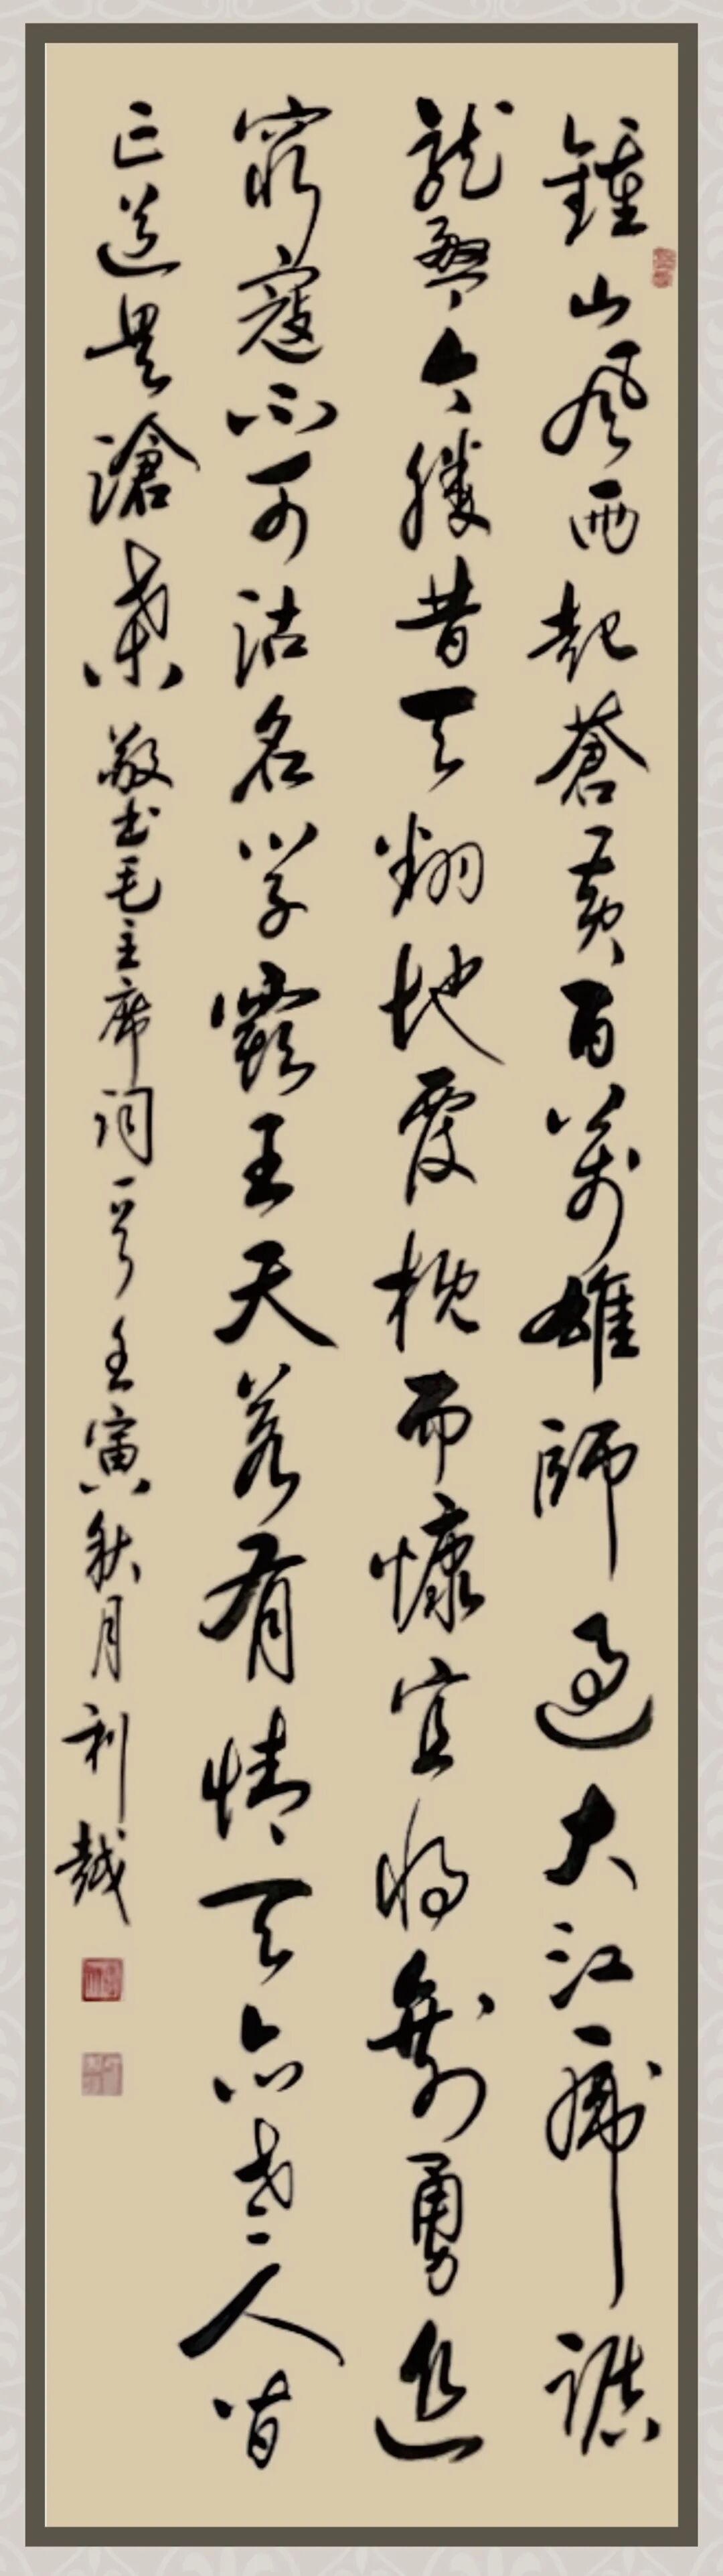 鍾山風雨起蒼黃百萬雄師過大江虎踞
龍盤今勝昔天翻地覆慨而慷宜將剩勇追
窮寇不可沽名學霸王天若有情天亦老人間
正道是滄桑 敬書毛主席詞一首 壬寅秋月 利越